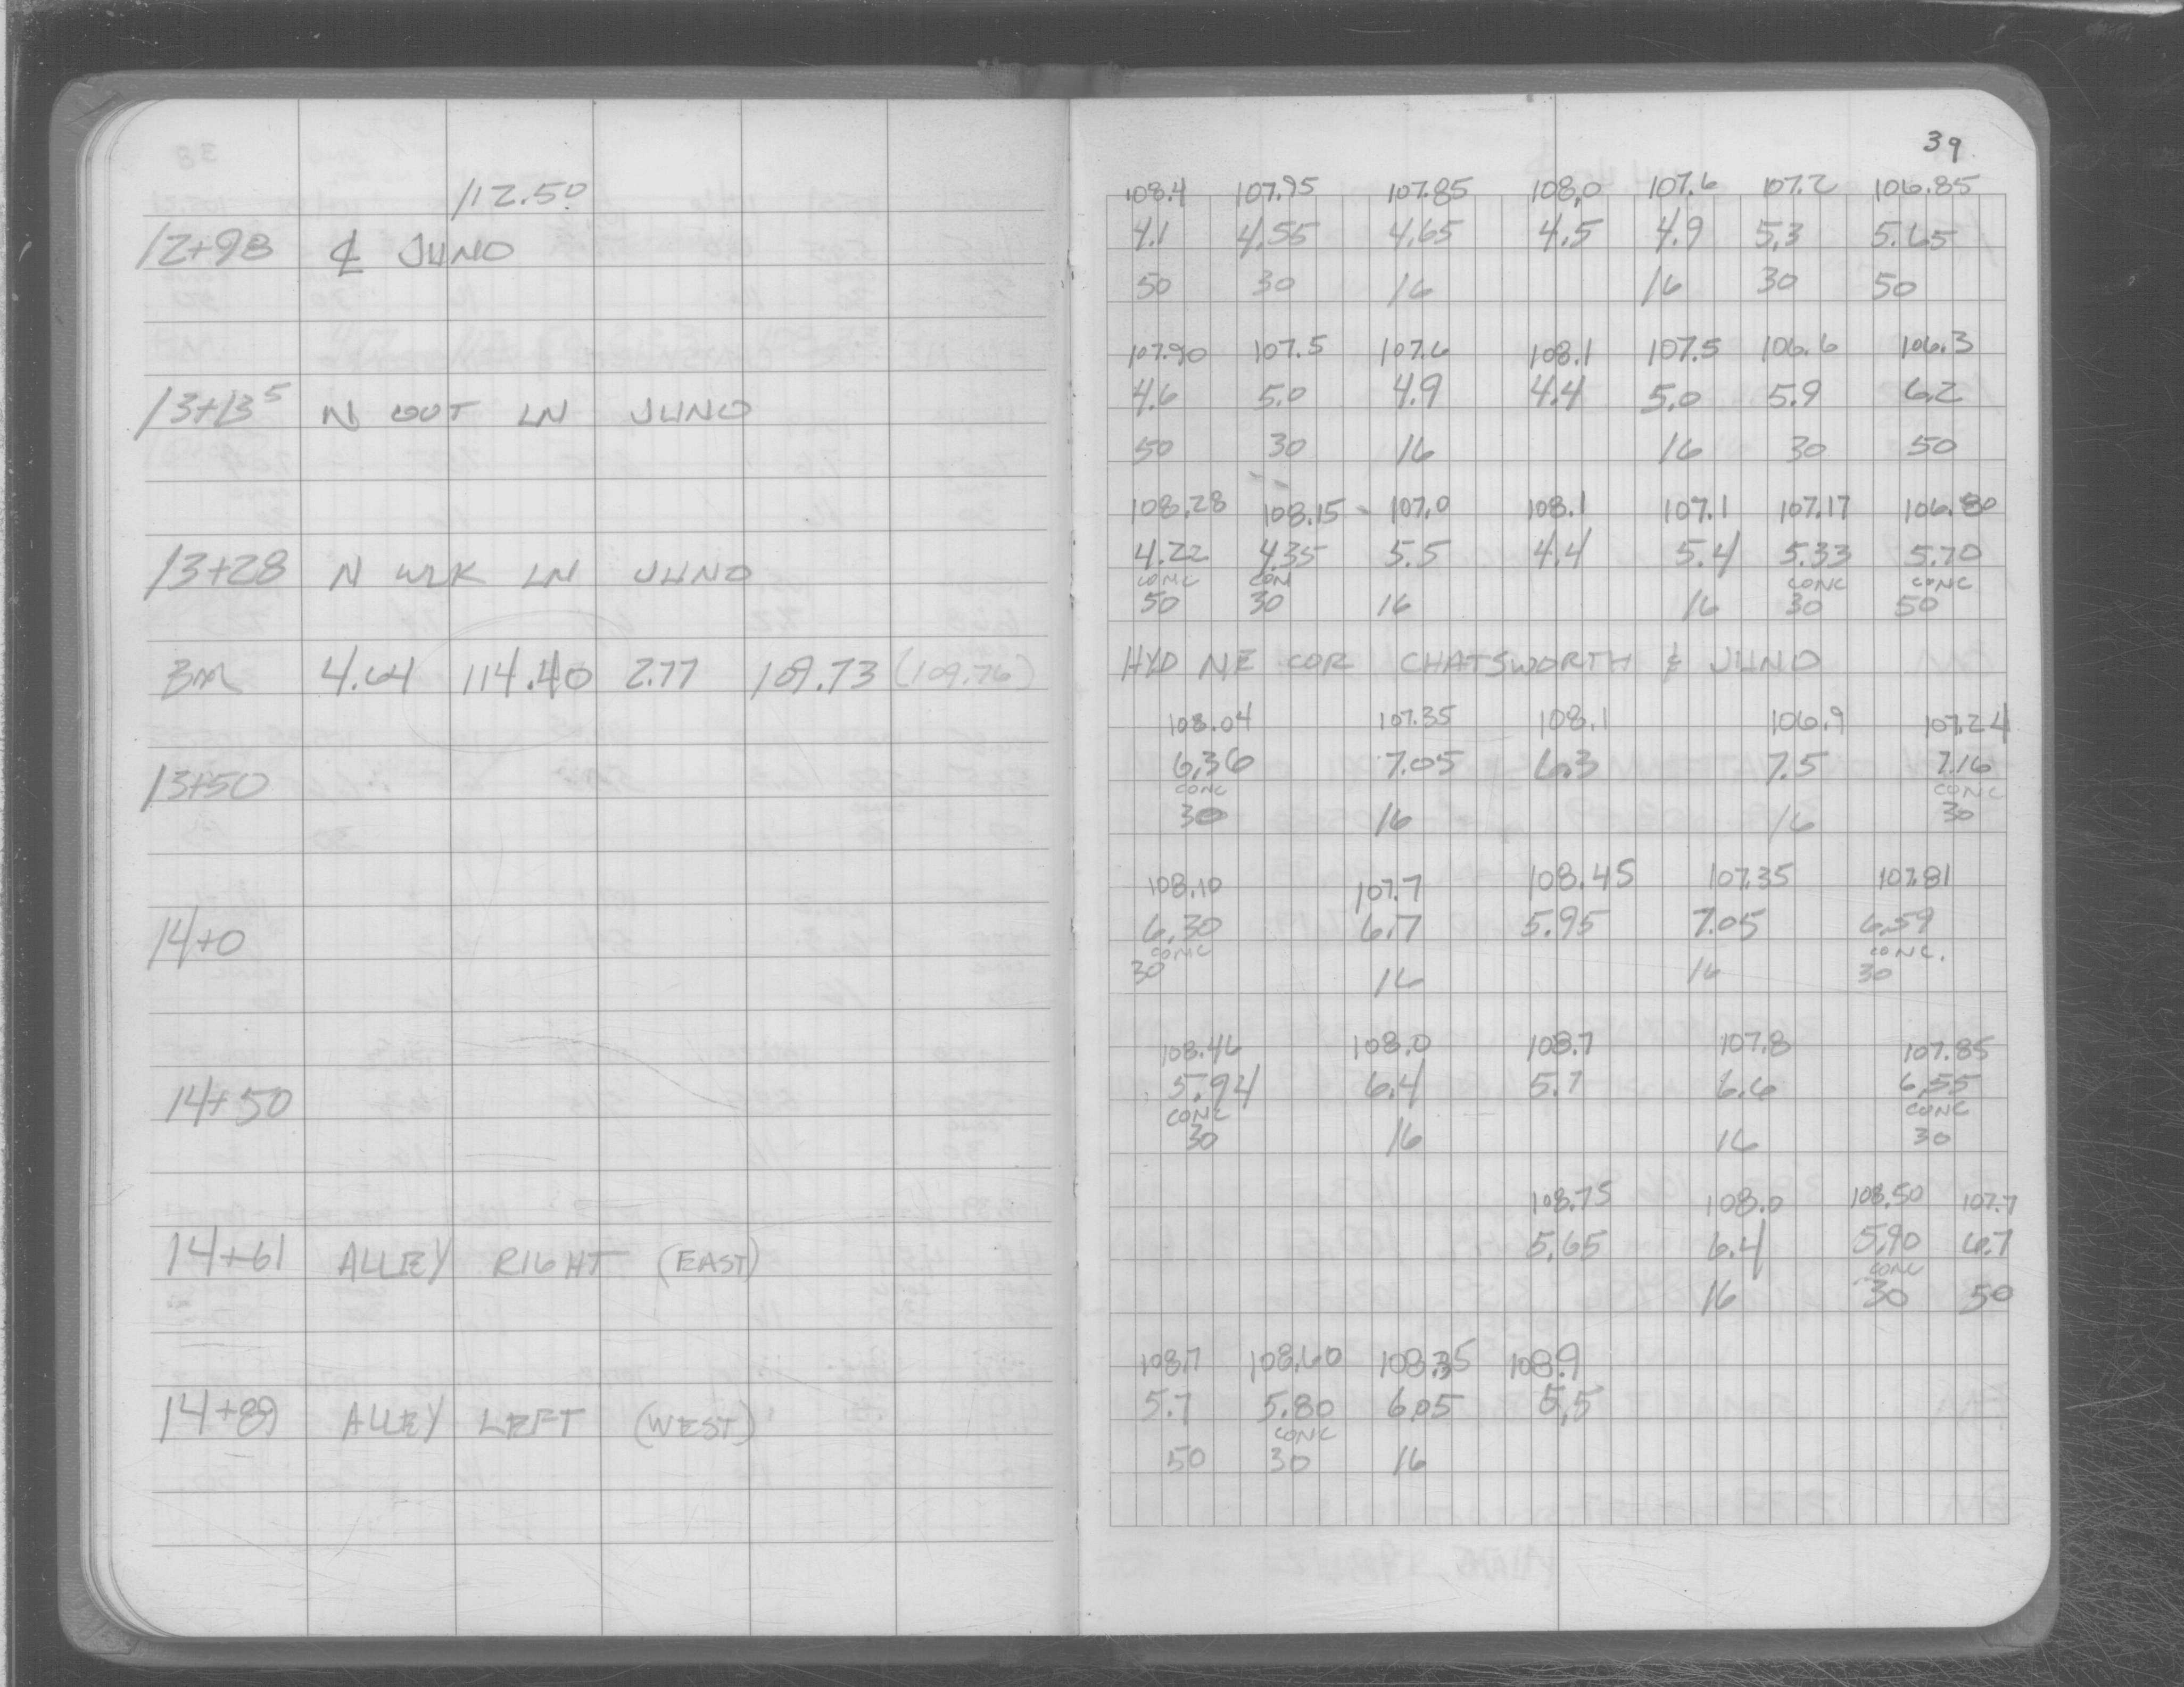 39
112.50
108.4 107.95 107.85 108.0 107.6 107.2 106.85
12+98 ℄ JUNO 4.1 4.55 4.65 4.5 4.9 5.3 5.65
50 30 16 16 30 50
107.90 107.5 107.6 108.1 107.5 106.6 106.3
13+13⁵ N OUT LN JUNO 4.6 5.0 4.9 4.4 5.0 5.9 6.2
50 30 16 16 30 50
108.28 108.15 107.0 108.1 107.1 107.17 106.80
13+28 N WLK LN JUNO 4.22 4.35 5.5 4.4 5.4 5.33 5.70
CONC CON CONC CONC
50 30 16 16 30 50
BM 4.64 114.40 2.77 109.73 (109.76) HYD NE COR CHATSWORTH & JUNO
108.04 107.35 108.1 106.9 107.24
13+50 6.36 7.05 6.3 7.5 7.16
CONC CONC
30 16 16 30
108.10 107.7 108.45 107.35 107.81
14+0 6.30 6.7 5.95 7.05 6.59
CONC CONC.
30 16 16 30
108.46 108.0 108.7 107.8 107.85
14+50 5.94 6.4 5.7 6.6 6.55
CONC CONC
30 16 16 30
108.75 108.0 108.50 107.7
14+61 ALLEY RIGHT (EAST) 5.65 6.4 5.90 6.7
CONC
16 30 50
108.7 108.60 108.35 108.9
14+89 ALLEY LEFT (WEST) 5.7 5.80 6.05 5.5
CONC
50 30 16